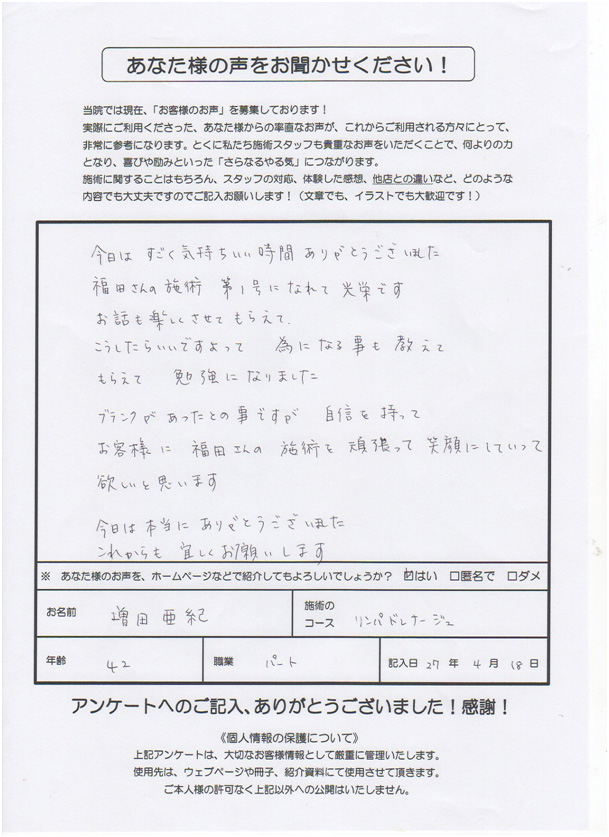 あなた様の声をお聞かせください！
当院では現在、「お客様のお声」を募集しております！
実際にご利用くださった、あなた様からの率直なお声が、これからご利用される方々にとって、
非常に参考になります。とくに私たち施術スタッフも貴重なお声をいただくことで、何よりの力
となり、喜びや励みといった「さらなるやる気」につながります。
施術に関することはもちろん、スタッフの対応、体験した感想、他店との違いなど、どのような
内容でも大丈夫ですのでご記入お願いします！（文章でも、イラストでも大歓迎です！）
今日は すごく気持ちいい時間 ありがとうございました
福田さんの施術 第1号になれて 光栄です
お話も楽しくさせて もらえて、
こうしたらいいですよって 為になる事も 教えて
もらえて 勉強になりました
ブランクが あったとの事ですが 自信を 持って
お客様に 福田さんの 施術を 頑張って 笑顔にしていって
欲しいと思います
今日は本当に ありがとうございました
これからも 宜しくお願いします
※ あなた様のお声を、ホームページなどで紹介してもよろしいでしょうか？ ☑はい □匿名で □ダメ
お名前 増田 亜紀 施術のコース リンパドレナージュ
年齢 42 職業 パート 記入日 27 年 4 月 18 日
アンケートへのご記入、ありがとうございました！感謝！
《個人情報の保護について》
上記アンケートは、大切なお客様情報として厳重に管理いたします。
使用先は、ウェブページや冊子、紹介資料にて使用させて頂きます。
ご本人様の許可なく上記以外への公開はいたしません。